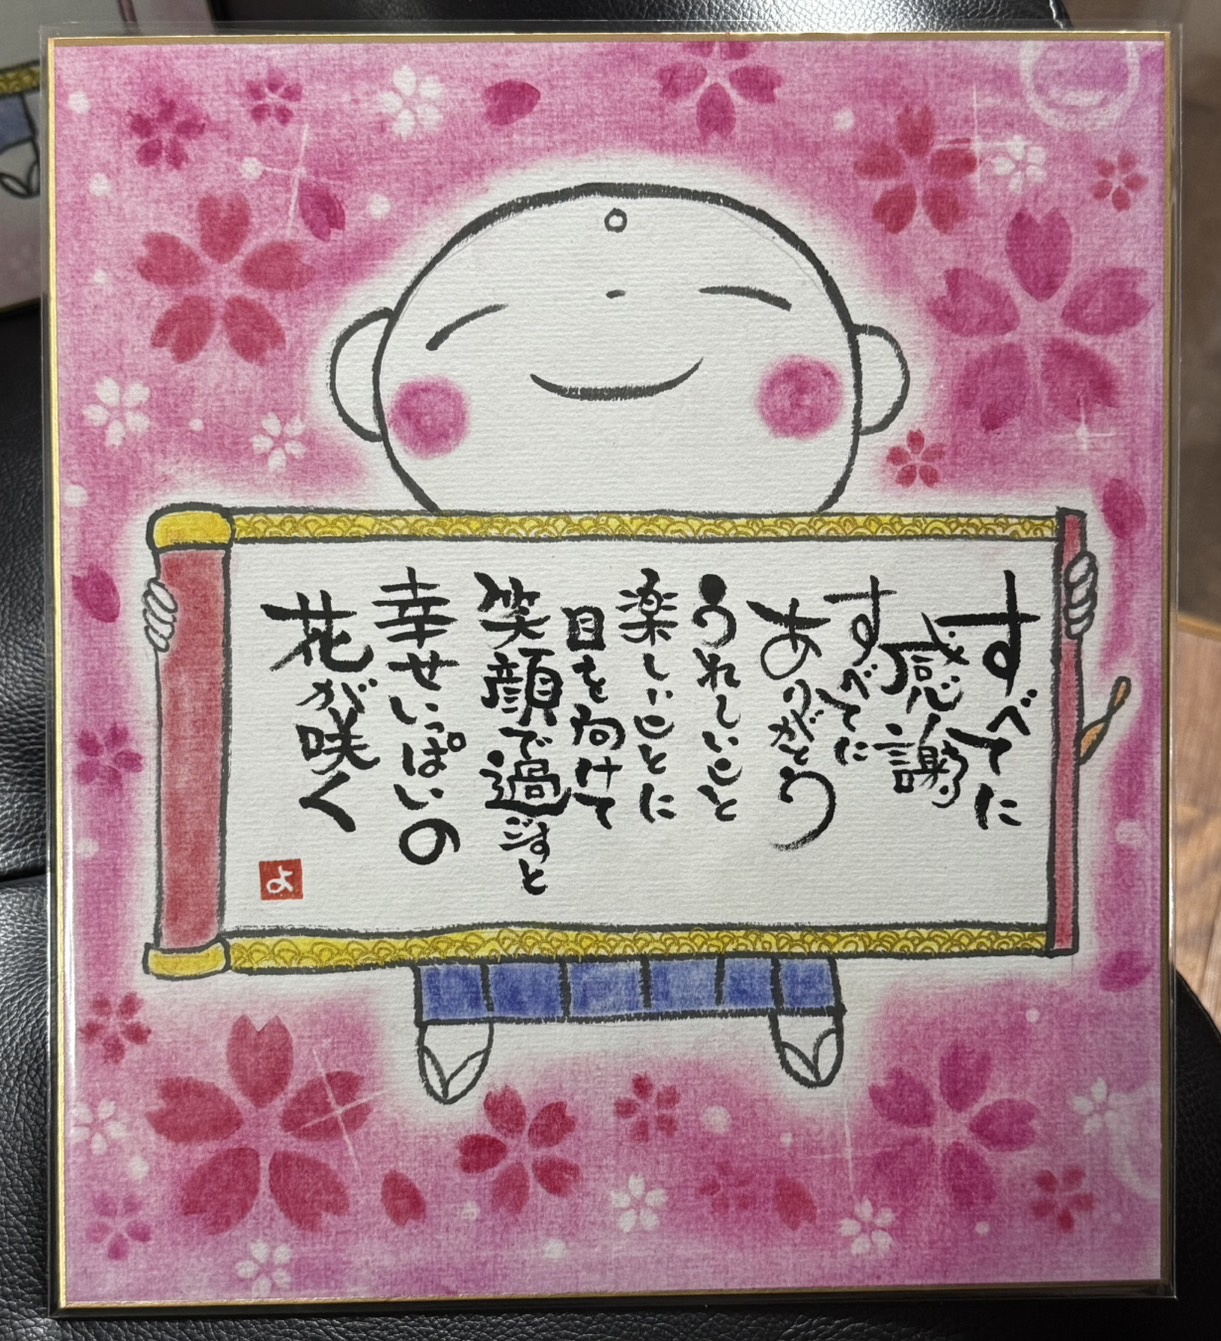 すべてに
感謝
すべてに
ありがとう
うれしいこと
楽しいことに
目を向けて
笑顔で過ごすと
幸せいっぱいの
花が咲く
よ